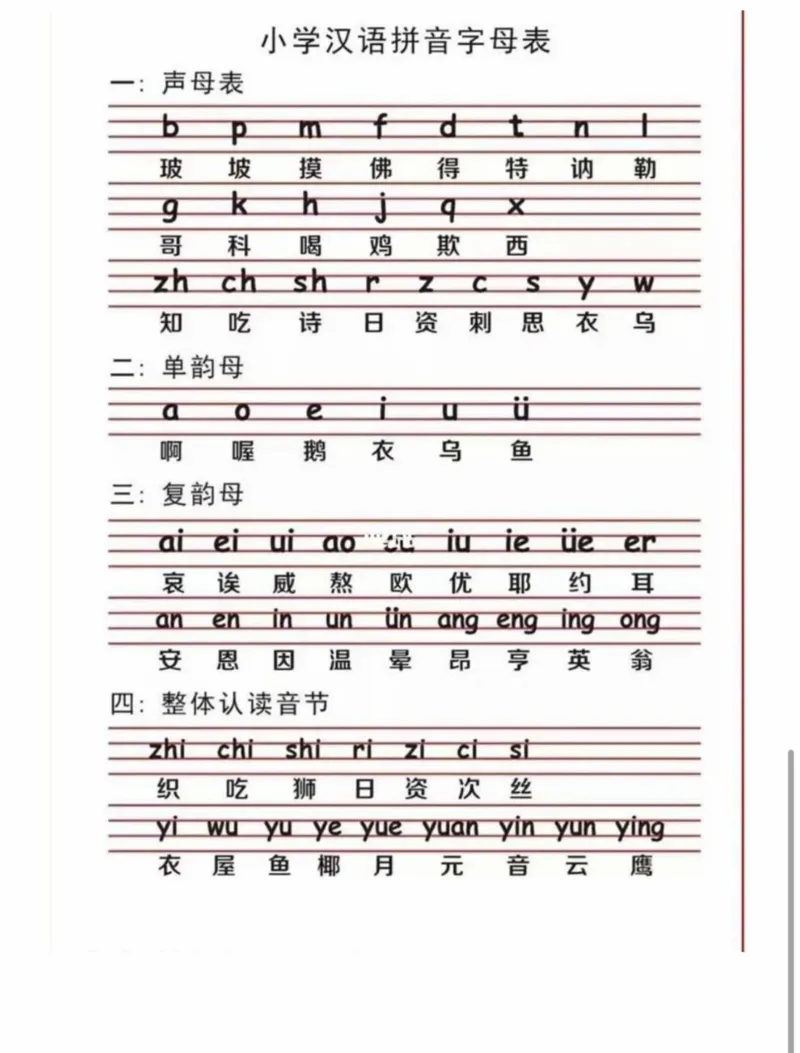 小学汉语拼音字母表
一：声母表
b p m f d t n l
玻 坡 摸 佛 得 特 讷 勒
g k h j q x
哥 科 喝 鸡 欺 西
zh ch sh r z c s y w
知 吃 诗 日 资 刺 思 衣 乌
二：单韵母
a o e i u ü
啊 喔 鹅 衣 乌 鱼
三：复韵母
ai ei ui ao iu ie üe er
哀 诶 威 熬 欧 优 耶 约 耳
an en in un ün ang eng ing ong
安 恩 因 温 晕 昂 亨 英 翁
四：整体认读音节
zhi chi shi ri zi ci si
织 吃 狮 日 资 次 丝
yi wu yu ye yue yuan yin yun ying
衣 屋 鱼 椰 月 元 音 云 鹰